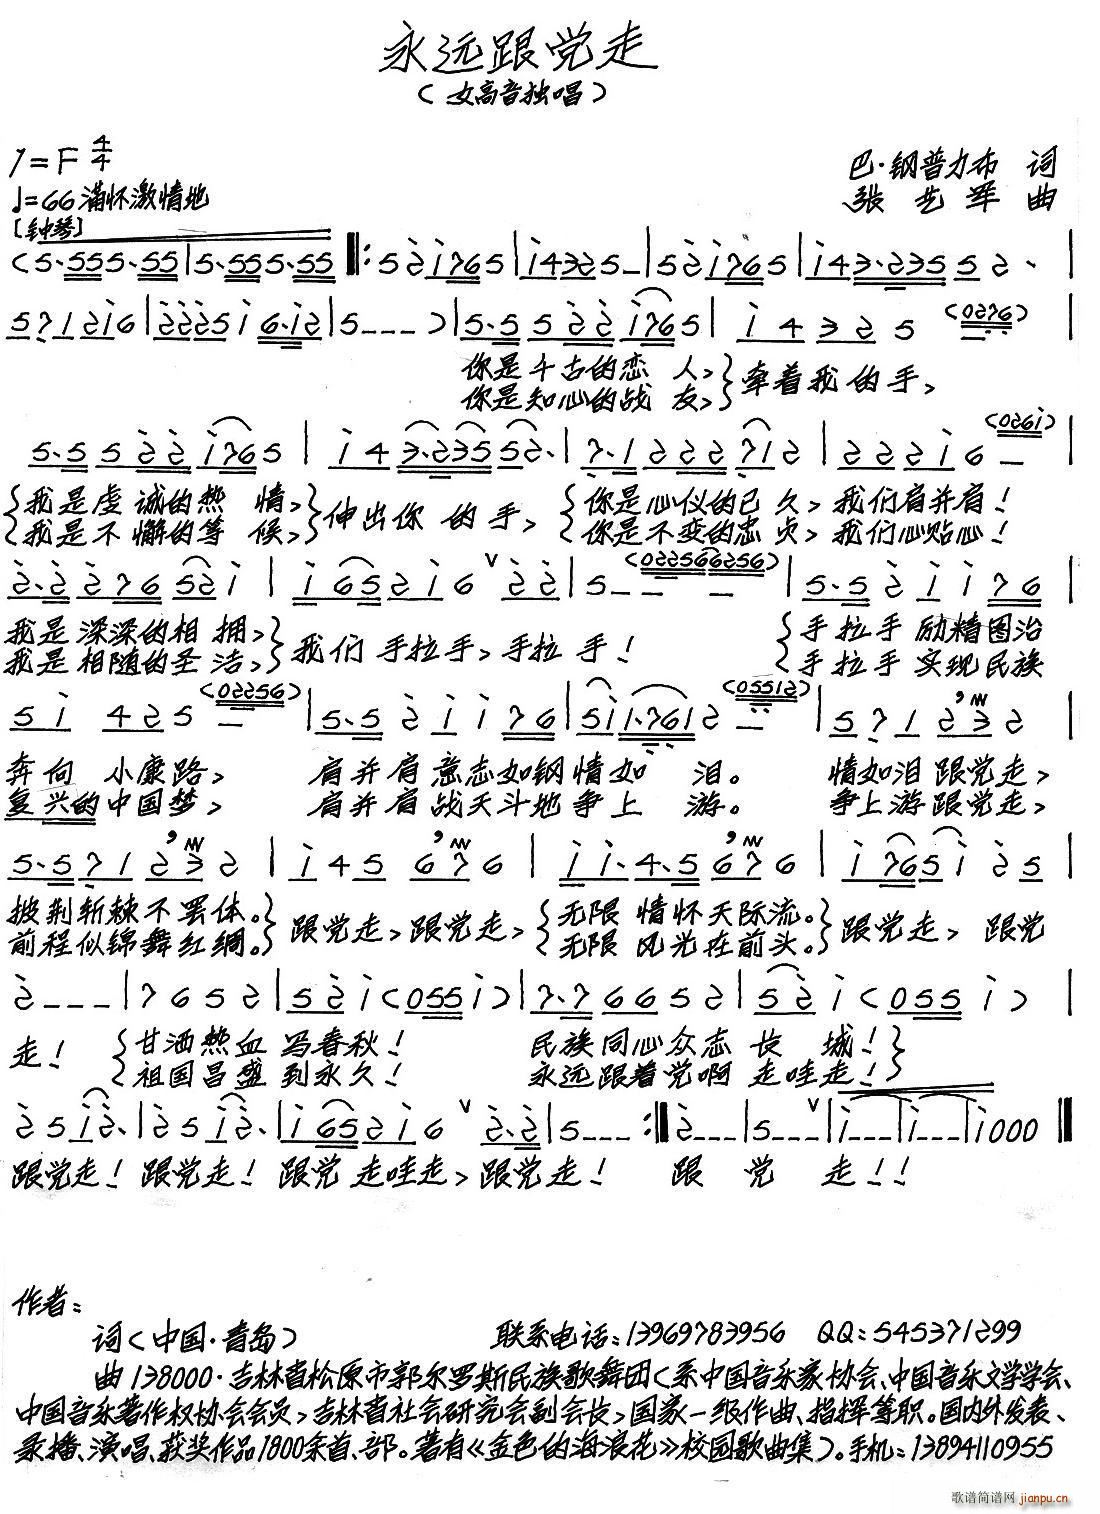 永远跟党走
（女高音独唱）
1=F 4/4
巴·钢普力布 词
♩=66 满怀激情地
张艺军 曲
[钟琴]
(5·555·55|5·555·55‖:52i765|i4325–|52i765|i43·23552·|
5712i6|2225i6·i2|5---)|5·5522i765|i4325 (0276)|
你是千古的恋 人，}牵着我的手，
你是知心的战 友，
5·5522i765|i43·23552·|7·1222712|222i6– (026i)|
{我是虔诚的热 情，}伸出你 的手，{你是心仪的已 久，我们肩并肩！
{我是不懈的等 候， 你是不变的忠 贞，我们心贴心！
2·227652i|i652i6ᵛ22|5–– (022566256)–|5·52ii76|
我是深深的相 拥，}我们 手拉手，手拉 手！{手拉手 励精图治
我是相随的圣 洁， 手拉手 实现民族
5i425 (02256)–|5·52ii76|5i1·7612 (05512)–|571232|
奔向 小康路， 肩并肩 意志如钢 情如 泪。 情如泪 跟党走，
复兴的中国梦， 肩并肩 战天斗地 争上 游。 争上游 跟党走，
5·571232|i45676|ii·4·5676|i765i25|
披荆斩棘不罢休。}跟党走，跟党走，{无限 情怀天际流。}跟党走， 跟党
前程似锦舞红绸。 无限 风光在前头。
2---|7652|52i(055i)|7·76652|52i(055i)|
走！{甘洒热血 写春秋！ 民族同心众志 长 城！}
祖国昌盛 到永久！ 永远跟着党啊 走哇走！
25i2·|25i2·|i652i6ᵛ2·2|5---:‖2---|5---ᵛ|i---|i---|i000‖
跟党走！跟党走！跟党 走哇走，跟党走！ 跟 党 走！！
作者：
词（中国·青岛） 联系电话：13969783956 QQ：545371299
曲138000·吉林省松原市郭尔罗斯民族歌舞团（系中国音乐家协会、中国音乐文学学会、
中国音乐著作权协会会员，吉林省社会研究会副会长，国家一级作曲、指挥等职。国内外发表、
录播、演唱、获奖作品1800余首、部。著有《金色的海浪花》校园歌曲集）。手机：13894110955
歌谱简谱网 jianpu.cn